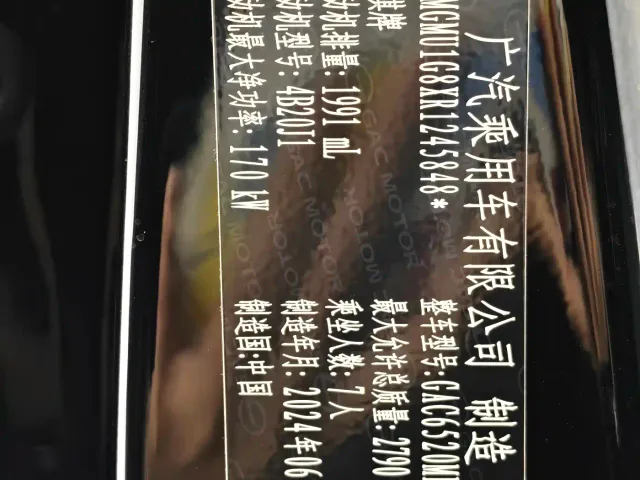 广汽乘用车有限公司 制造
MGMU1G8XR1245848* 整车型号:GAC6520M
祺牌 最大允许总质量: 2790
动机排量: 1991 mL 乘坐人数: 7人
动机型号: 4B20J1 制造年月: 2024年06
动机最大净功率: 170 kW 制造国:中国
GAC MOTOR